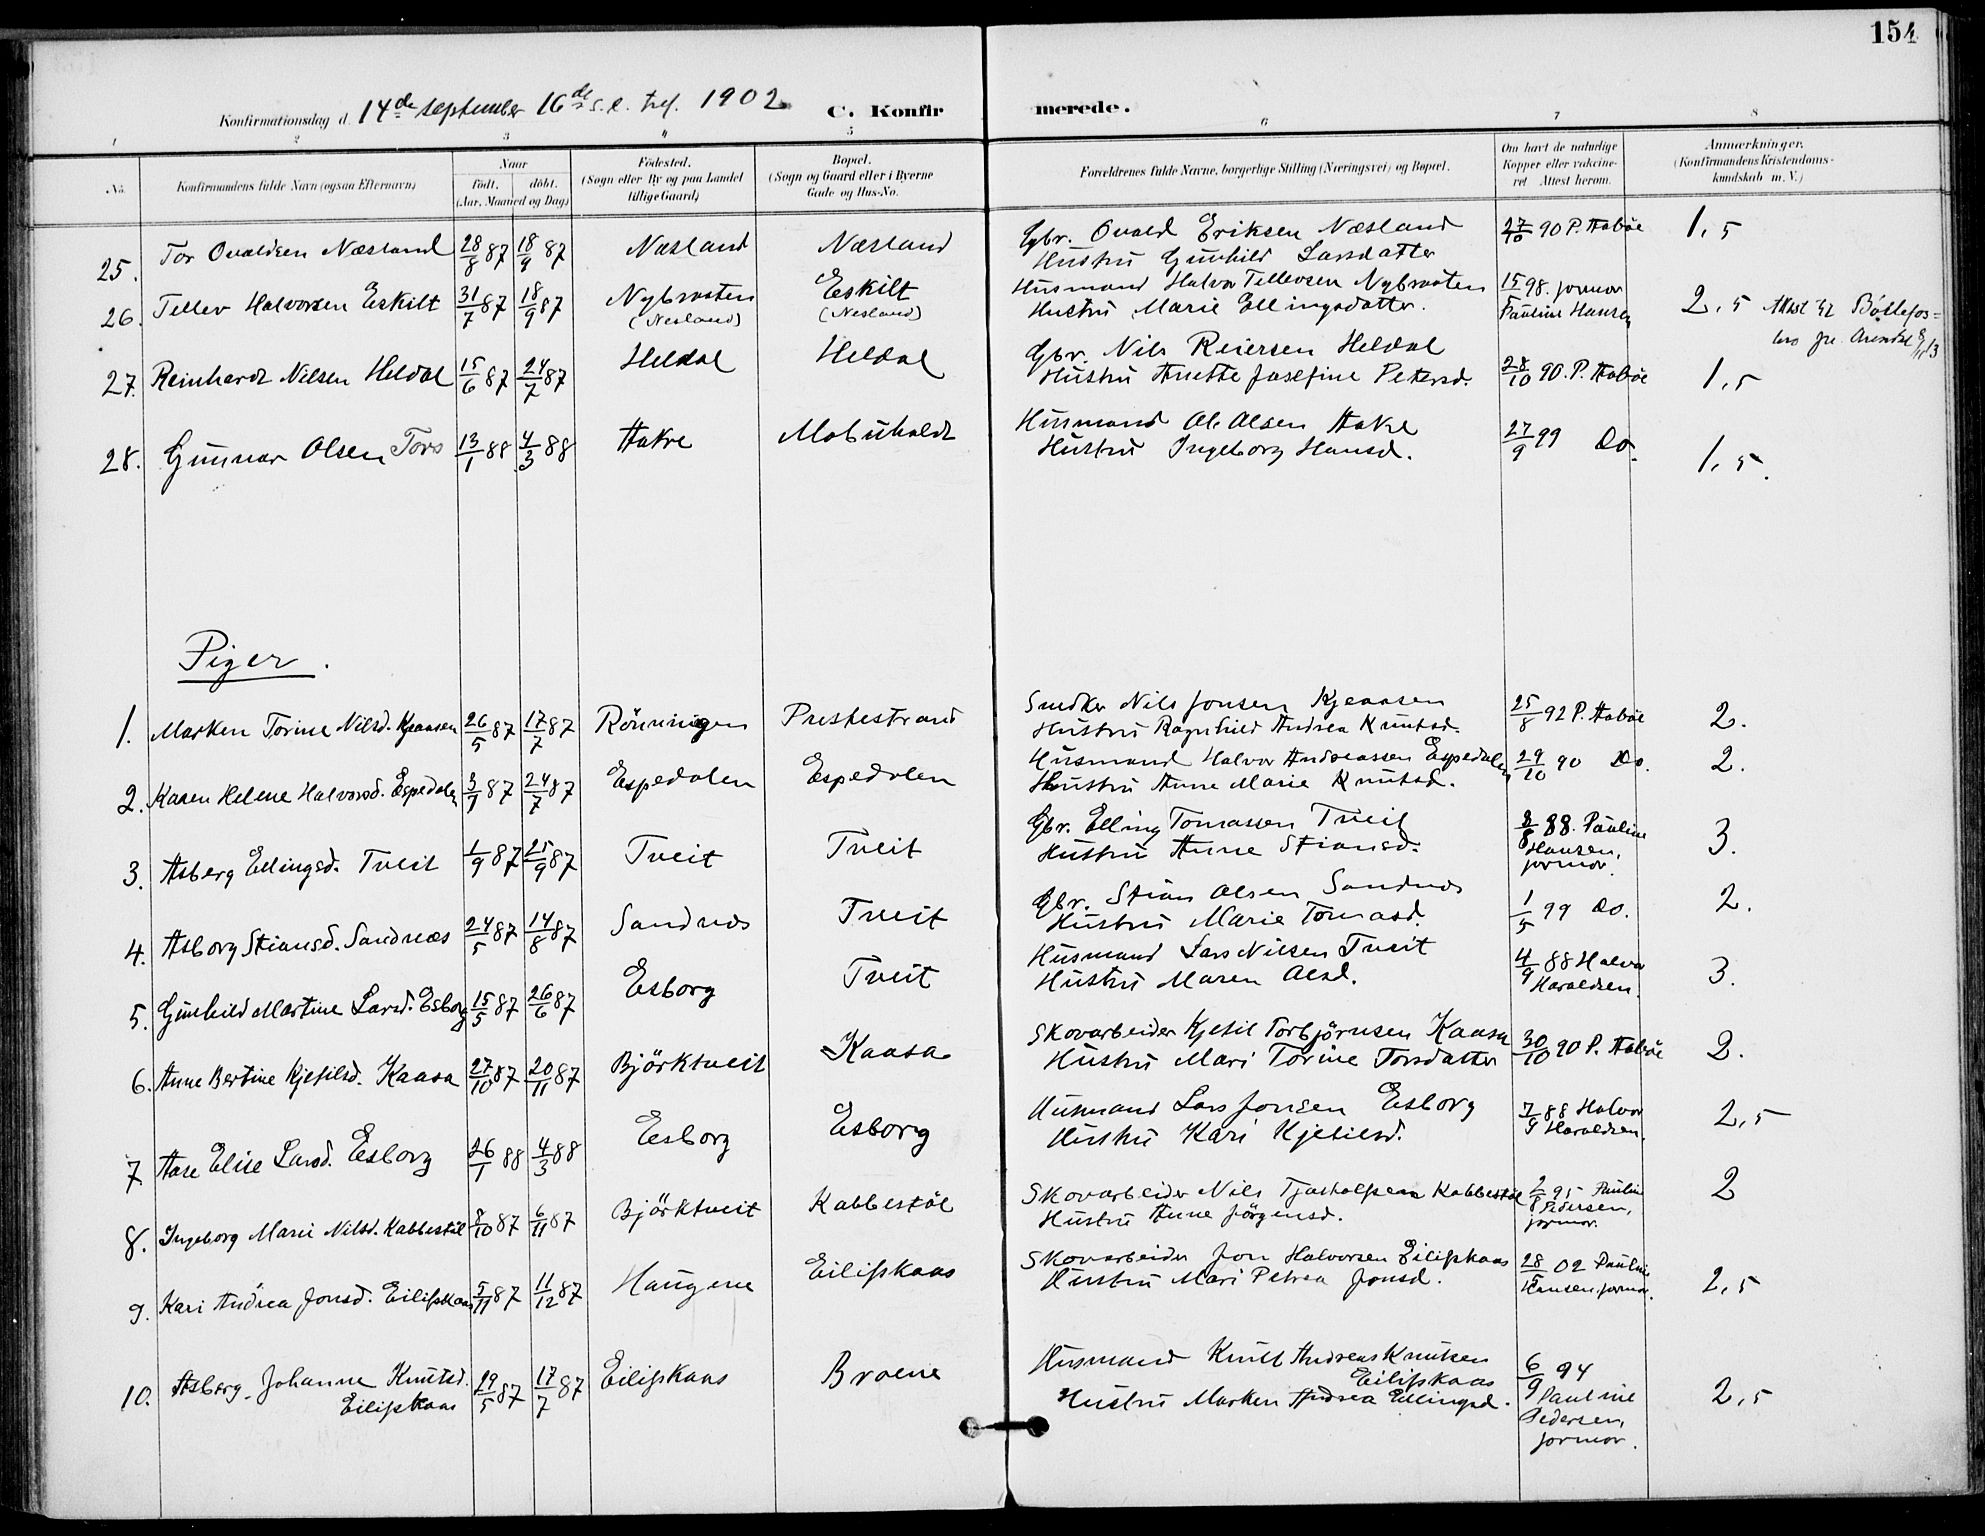 154
Konfirmationsdag d. 14de september 16de s. e. tref. 1902
C. Konfirmerede.
1 2 3 4 5 6 7 8
No. Konfirmandens fulde Navn (ogsaa Efternavn)
Naar født. døbt. (Aar, Maaned og Dag)
Fødested. (Sogn eller By og paa Landet tillige Gaard)
Bopæl. (Sogn og Gaard eller i Byerne Gade og Hus-No.
Forældrenes fulde Navne, borgerlige Stilling (Næringsvei) og Bopæl.
Om havt de naturlige Kopper eller vaccineret Attest herom.
Anmærkninger. (Konfirmandens Kristendomskundskab m. V.)
25. Tor Ovaldsen Næsland 28/8 87 18/9 87 Næsland Næsland Gbr. Ovald Eriksen Næsland 27/10 90 P. Aabøe 1,5
Hustru Gunhild Larsdatter
26. Tellev Halvorsen Eskilt 31/7 87 18/9 87 Nybraaten (Nesland) Eskilt (Nesland) Husmand Halvor Tellevsen Nybraaten 15 98. jormor 2,5 Attest Bøllefos=
Hustru Marie Ellingsdatter. Pauline Hansen
bro pr. Arendal
27. Reinhardt Nilsen Heldal 15/6 87 24/7 87 Heldal Heldal Gbr. Nils Reiersen Heldal 28/10 90. P. Aabøe 1,5
Hustru Anette Josefine Petersd.
28. Gunnar Olsen Tors 13/1 88 4/3 88 Aakre Mobuholdt Husmand Ole Olsen Aakre 27/9 99 Do. 1,5.
Hustru Ingeborg Hansd.
Piger.
1. Marken Torine Nilsd. Kjeaasen 26/5 87 17/7 87 Rönningen Prestestrand Snedker Nils Jonsen Kjeaasen 25/8 92 P. Aabøe 2.
Hustru Ragnhild Andrea Knutsd.
2. Karen Helene Halvorsd. Espedalen 3/7 87 24/7 87 Espedalen Espedalen Husmand Halvor Andreassen Espedalen 29/10 90 Do. 2.
Hustru Anne Marie Knutsd.
3. Asberg Ellingsd. Tveit 1/9 87 25/9 87 Tveit Tveit Gbr. Elling Tomassen Tveit 8/8 88. Pauline Hansen, jormor. 3.
Hustru Anne Stiansd.
4. Asborg Stiansd. Sandnæs 24/5 87 14/8 87 Sandnes Tveit Gbr. Stian Olsen Sandnes 1/5 99 Do. 2.
Hustru Marie Tomasd.
5. Gunhild Martine Larsd. Esborg 15/5 87 26/6 87 Esborg Tveit Husmand Lars Nilsen Tveit 4/9 88 Halvor Haraldsen. 3.
Hustru Maren Olsd.
6. Anne Bertine Kjetilsd. Kaasa 27/10 87 20/11 87 Björktveit Kaasa Skovarbeider Kjetil Torbjörnsen Kaasa 30/10 90 P. Aabøe 2.
Hustru Mari Torine Torsdatter
7 Aase Elise Larsd. Esborg 26/1 88 4/3 88 Esborg Esborg Husmand Lars Jonsen Esborg 7/9 88 Halvor Haraldsen. 2,5
Hustru Kari Kjetilsd.
8. Ingeborg Marie Nilsd. Kabbestöl 8/10 87 6/11 87 Björktveit Kabbestöl Skovarbeider Nils Tjostolfsen Kabbestöl 2/8 95 Pauline Pedersen, jormor. 2
Hustru Anne Jörgensd.
9. Kari Andrea Jonsd. Eilifskaas 5/11 87 11/12 87 Haugene Eilifskaas Skovarbeider Jon Halvorsen Eilifskaas 28/5 02 Pauline Hansen, jormor. 2,5
Hustru Mari Petrea Jonsd.
10. Asberg Johanne Knutsd. Eilifskaas 29/5 87 17/7 87 Eilifskaas Braene Husmand Knut Andreas Knutsen Eilifskaas 6/9 94 Pauline Pedersen, jormor. 2,5
Hustru Marken Andrea Ellingsd.